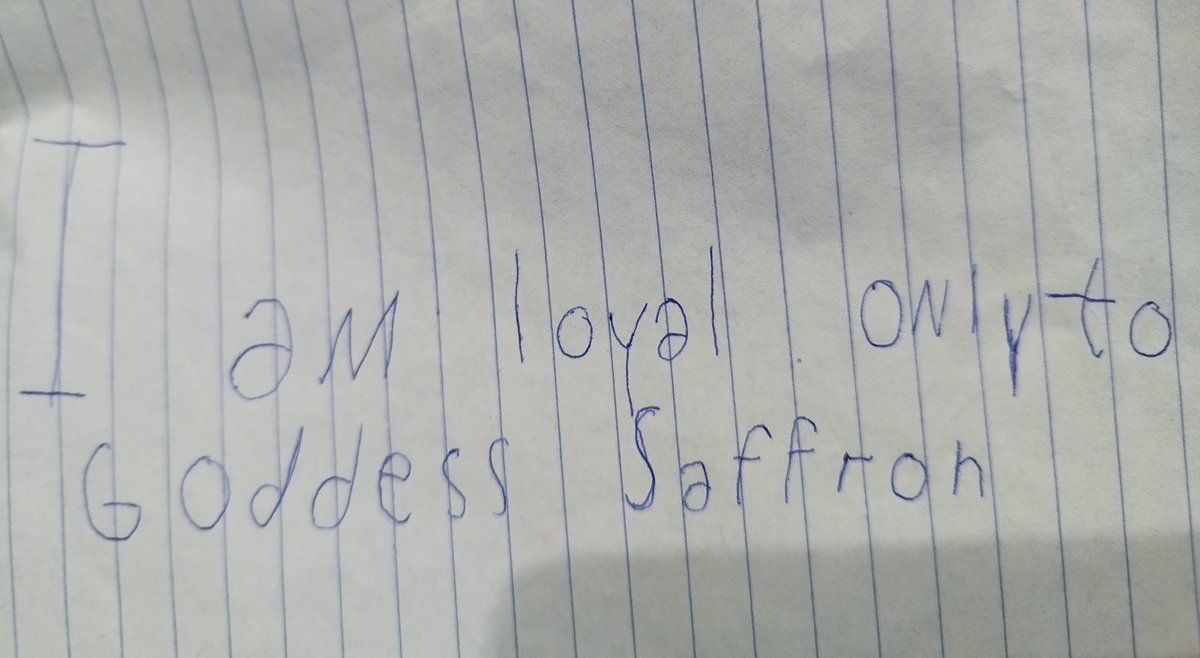 I am loyal only to
Goddess Saffron